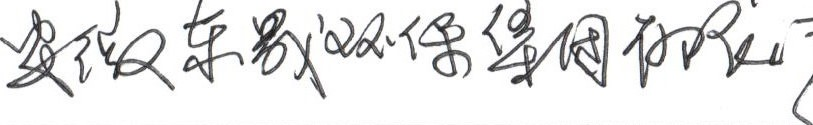 安徽东晟环保集团有限公司